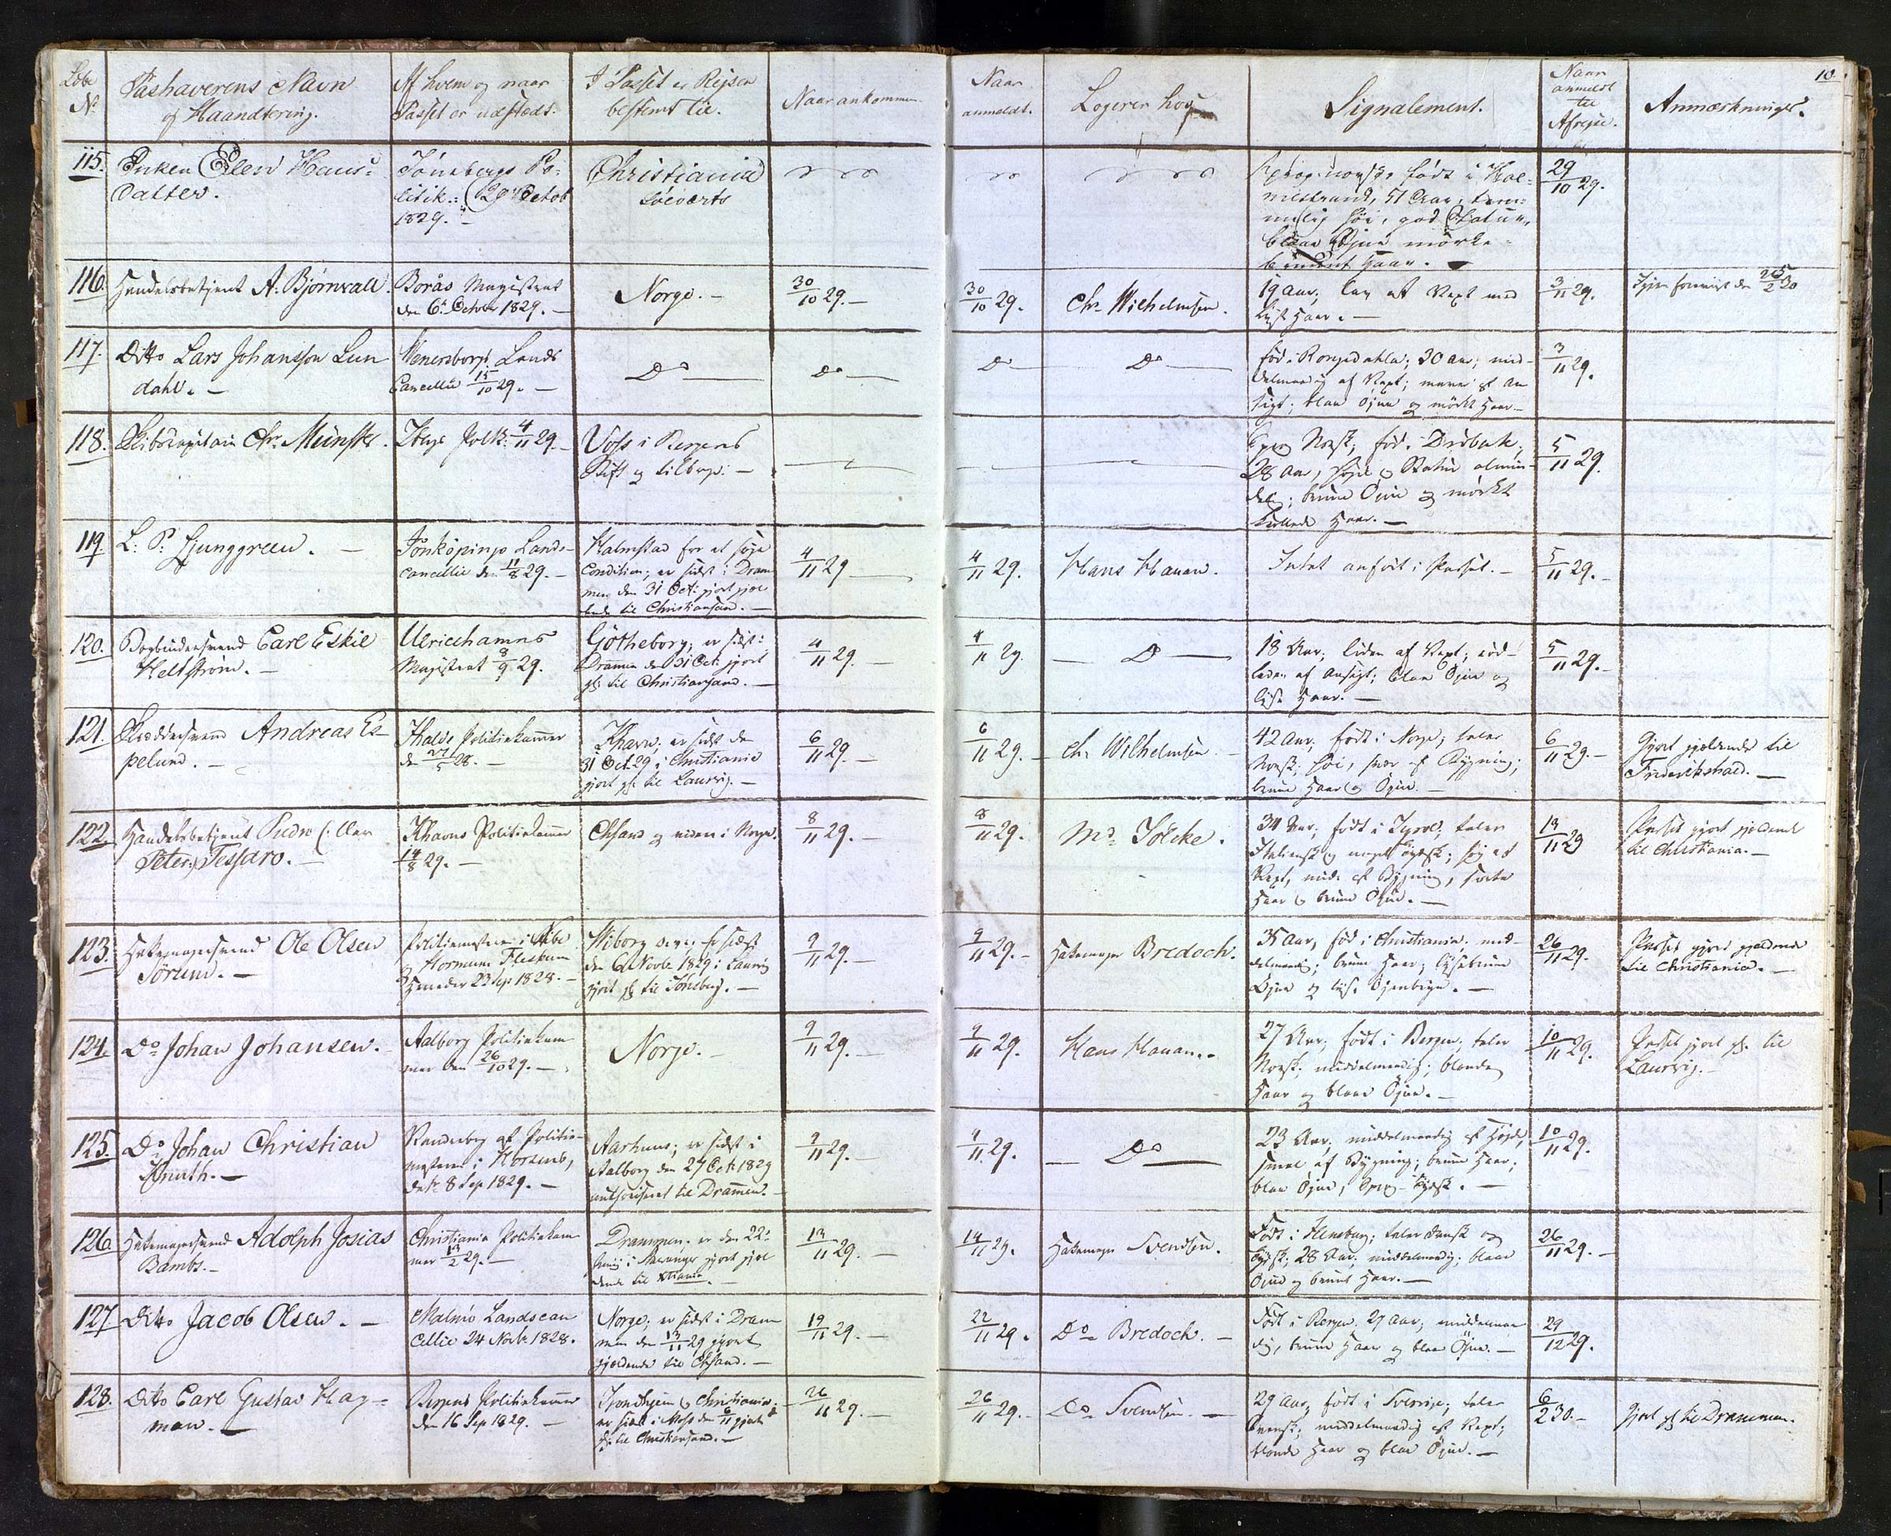 10
Løbe No. Pashaverens Navn og Haandtering. Af hvem og naar Passet er udstædt. I Passet er Rejsen bestemt til. Naar ankommen. Naar anmeldt. Logerer hos Signalement. Naar anmeldt til Afrejse. Anmærkninger.
115. Enken Elen Hans-
datter.
Tönsbergs Po-
litik.: 29 Octob
1829.
Christiania
Söeværts
født i Hol-
mestrand, 51 Aar, tem-
melig høi, god Statur,
blaae Øjne mörke-
bruunt Haar.
29/10 29.
116. Handelsbetjent A. Bjørnvall.
Borås Magistrat
den 6. October 1829.
Norge.
30/10 29.
30/10 29.
Chr. Wilhelmsen.
19 Aar; lang af Vext med
lyst Haar.
3/11 29.
117. Ditto Lars Johansson Lun
dahl.
Wenersborgs Lands
Cancellie 15/10 29.
Do
Do
Do
Do
30 Aar; mid-
delmaadig af Vext;
blaae Øjne og mörkt Haar
3/11 29.
118. Skibscapitain Chr. Münster.
4/11 29.
Voss i Bergens
Stift og tilbage.
Norsk, fød i Drøbak,
28 Aar,
brune Øjne og mörkt
Haar.
5/11 29.
119. L. P. Ljunggreen.
Jönköpings Lands-
cancellie den 11/8 29.
Halmstad for at søge
Condition; er sidst i Dram
men den 31 Oct. gjort gjæl
dende til Christiansand.
4/11 29
4/11 29.
Hans Hauan.
Intet anført i Passet.
5/11 29.
120. Bogbindersvend Carl Eskil
Heltström.
Ulricehamns
Magistrat 8/9 29.
Götheborg; er sidst i
Drammen den 31 Oct. gjort
gl. til Christiansand.
4/11 29.
4/11 29
Do
18 Aar; liden af Vext;
af Ansigt; blaae Øjne og
lyse Haar.
5/11 29.
121. Skræddersvend Andreas Es
pelund.
Khavns Politiekammer
d. 27/5 28.
Khavn; er sidst den
31 Oct. 29 i Christiania
gjort gl. til Laurvig.
6/11 29.
6/11 29.
Chr. Wilhelmsen
42 Aar, født i Norge; taler
Norsk; høi, svær af Bygning;
brune Haar og Øjne.
6/11 29.
Gjort gjældende til
Frederikshald.
122. Handelsbetjent Pedro (: eller
Peter:) Tessaro.
Khavns Politiekammer
14/8 29.
Chsand og viden i Norge.
8/11 29.
8/11 29.
Md. Jölcke.
34 Aar, født i Tyrol, taler
Italiensk og noget tydsk; høj af
Vext, af Bygning, sorte
Haar og brune Øjne.
13/11 29
Passet gjort gjældende
til Christiania.
123. Hattemagersvend Ole Olsen
Törund.
Politiemesteren i
Hereder 23 Sep. 1828.
Wiborg er sidst
den 6 Novbr 1829 i Laurvig
gjort gl. til Tönsberg.
9/11 29.
9/11 29.
Hattemager Bredoch.
35 Aar, fød i Christiania. mid-
delmaadig; brune Haar; lysebrune
Øjne og lyse Øjenbryn.
26/11 29.
Passet gjort gjældende
til Christiania.
124. Do Johan Johansen.
Aalborg Politiekam
mer den 26/10 29.
Norge.
9/11 29.
9/11 29.
Hans Hauan.
27 Aar, født i Bergen, taler
Norsk; middelmaadig; blonde
Haar og blaae Øjne.
10/11 29.
Passet gjort gl. til
Laurvig.
125. Do Johan Christian
Knuth.
af Politie-
mesteren i Horsens,
dat. 8 Sep. 1829.
Aarhuus; er sidst i
Aalborg den 27 Oct. 1829
authoriseret til Drammen.
9/11 29.
9/11 29.
Do
23 Aar, middelmaadig af Højde,
smal af Bygning; brune Haar;
blaae Øjne; tydsk.
10/11 29.
126. Hattemagersvend Adolph Josias
Bambs.
Christiania Politiekam
mer 13/2 29.
Drammen. er den 22
i Stavanger gjort gjæl
dende til Xtiania.
13/11 29.
14/11 29.
Hattemager Svendsen.
Født i Flensburg; taler dansk og
tydsk; 28 Aar, middelmaadig; blaae
Øjne og brunt Haar.
26/11 29.
127. Ditto Jacob Olsen.
Malmö Landscan
cellie 24 Novbr. 1828.
Norge; er sidst i Dram
men den 13/11 29 gjort
gjældende til Chsand.
19/11 29.
22/11 29.
Do Bredoch.
Født i Bergen. 27 Aar; middelmaa
dig, brune Haar og blaae Øjne.
29/12 29.
128. Ditto Carl Gustav Hag-
man.
Bergens Politiekammer
den 16 Sep. 1829.
Trondhjem og Christiania;
er sidst i Moss den 6/11 gjort
gl. til Christiansand.
26/11 29.
26/11 29.
Do Svendsen.
29 Aar, født i Sverrig; taler
svensk; middelmaadig af Vext;
blonde Haar og blaae Øjne.
6/2 30.
gjort gl. til Drammen.